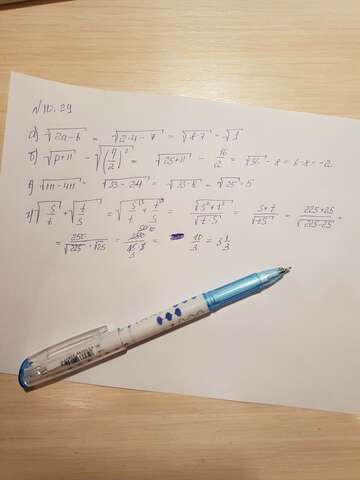 №10.29
а) √(2a-b) = √(2·4-7) = √(8-7) = √1
б) √(p+11) - √((q/2)²) = √(25+11) - 16/2 = √36 - 8 = 6-8 = -2
в) √(m-4n) = √(33-24) = √(33-8) = √25 = 5
г) √(s/t) + √(t/s) = √(s/t + t/s) = √(s²+t²)/√(t·s) = (s+t)/√(ts) = (225+25)/√(225·25) =
= 250/(√225·√25) = 250/(15·5) = 10/3 = 3 1/3